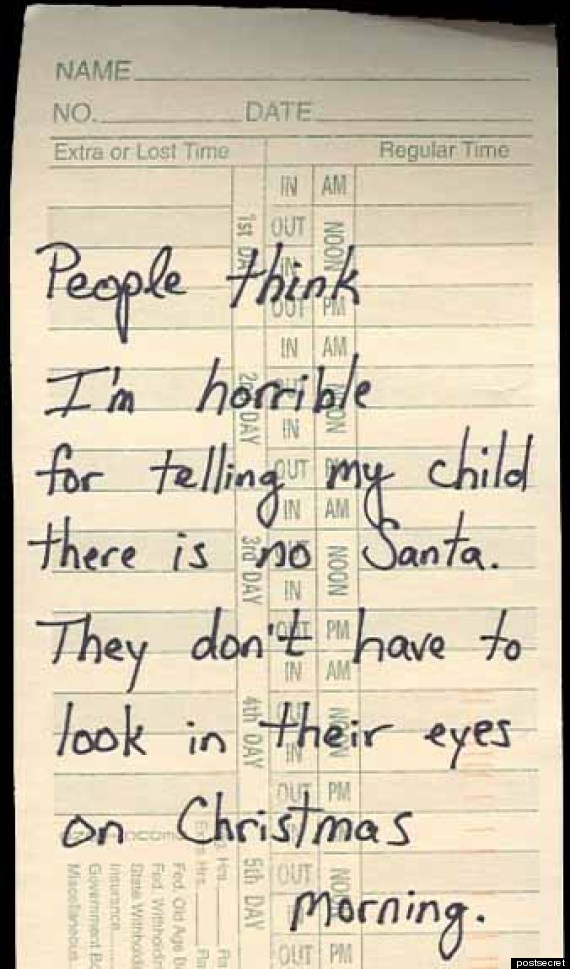 NAME
NO. DATE
Extra or Lost Time Regular Time
IN AM
1st DAY OUT NOON
IN
OUT PM
IN AM
2nd DAY
IN
OUT
IN AM
3rd DAY NOON
IN
OUT PM
IN AM
4th DAY
IN
OUT PM
5th DAY OUT
OUT PM
People think
I'm horrible
for telling my child
there is no Santa.
They don't have to
look in their eyes
on Christmas
morning.
Hrs.
Hrs.
Fed. Old Age
Fed. Withholdin
State Withholdin
Insurance
Government
Miscellaneous
postsecret